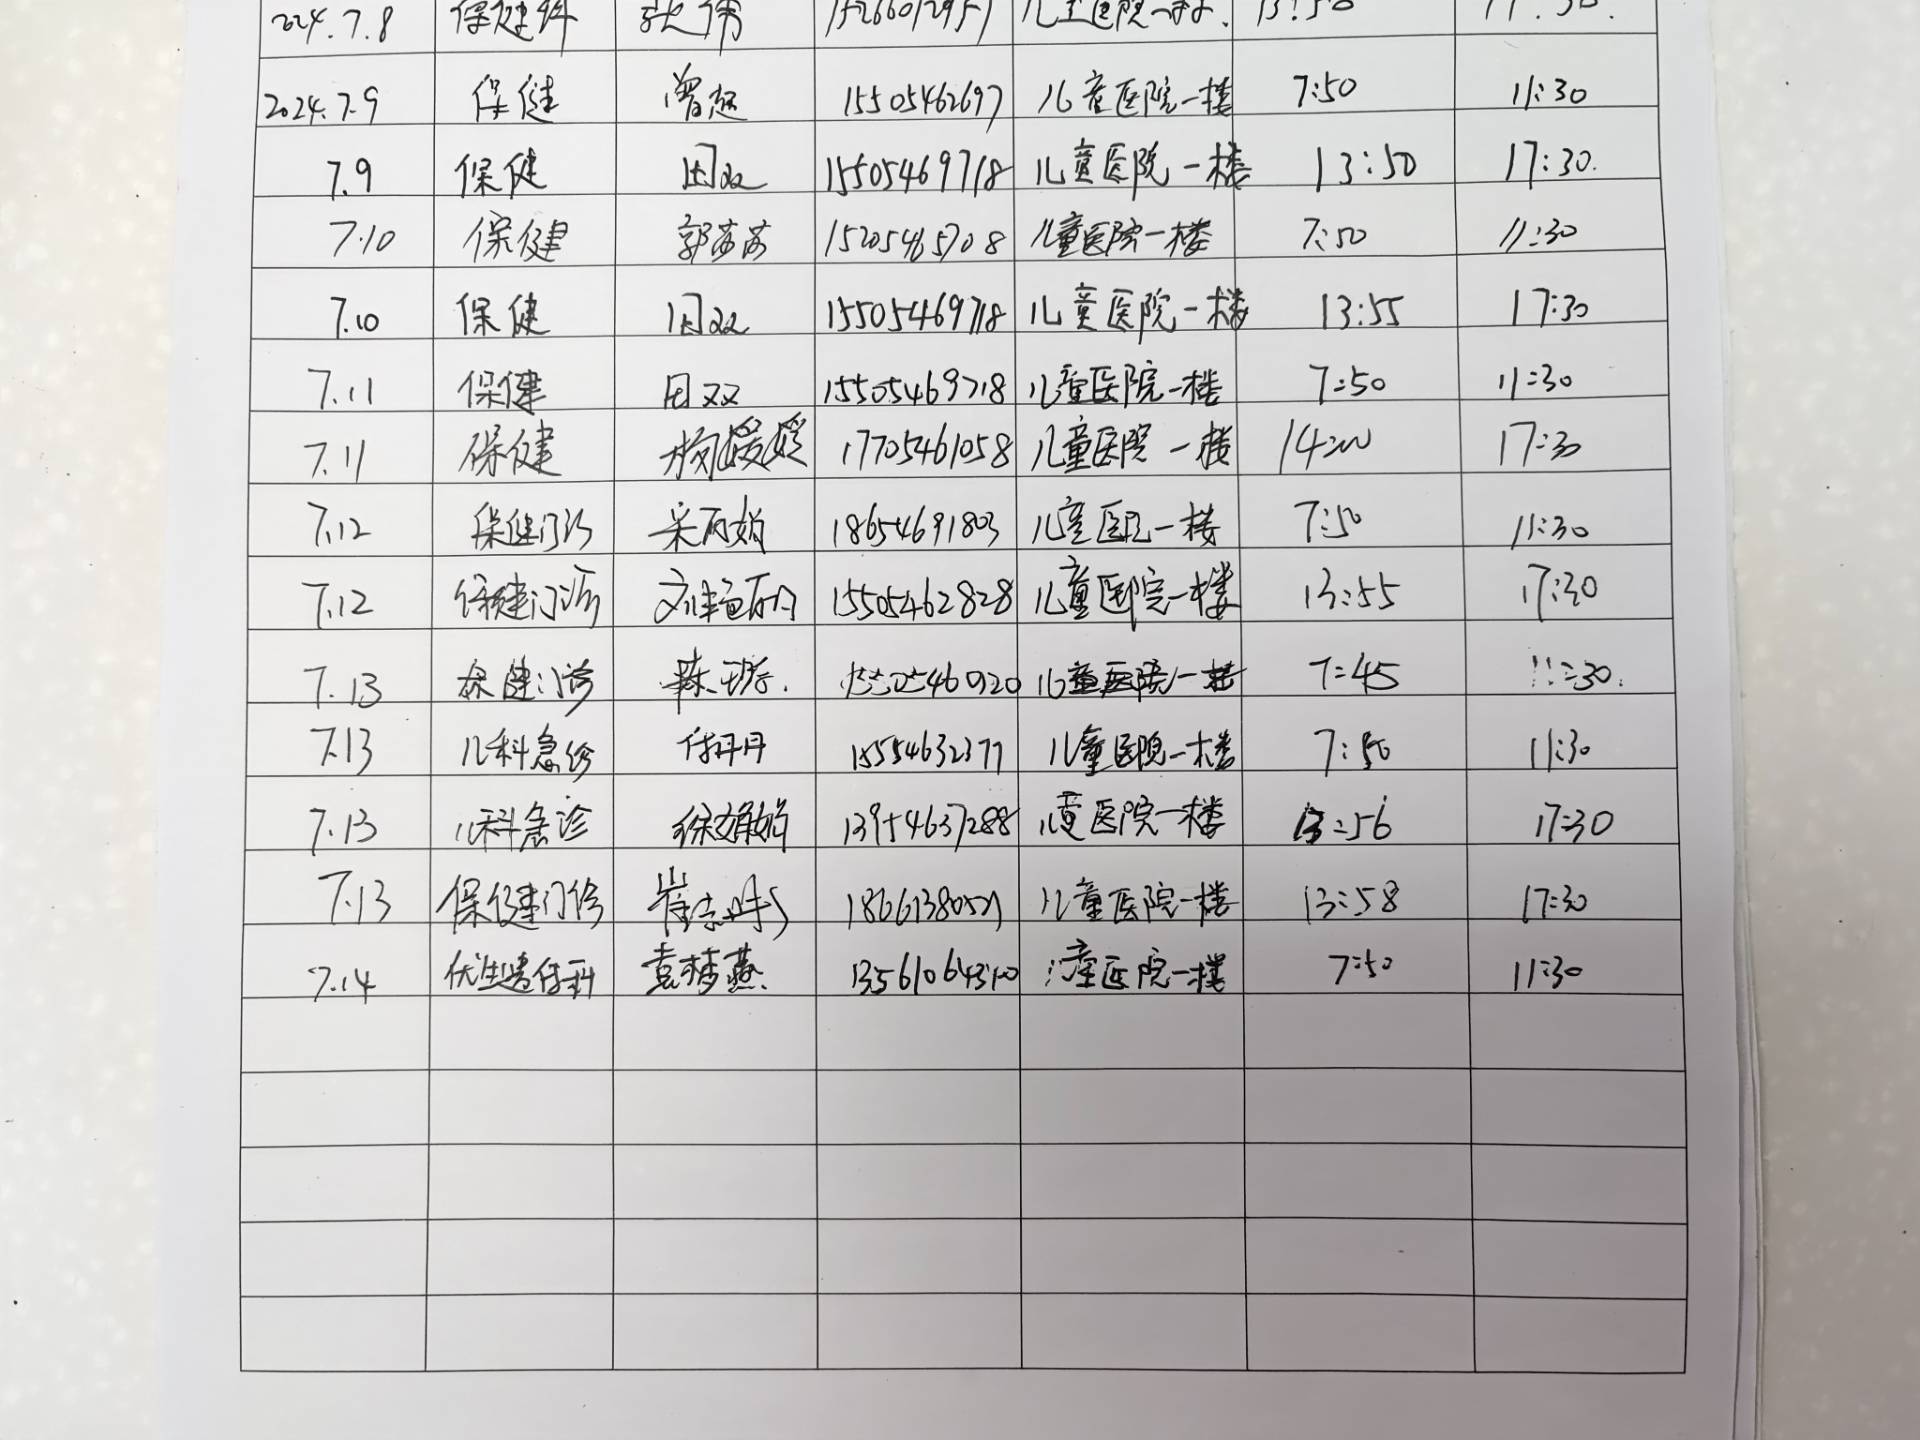 2024.7.8 保健科 张伟 儿童医院一楼. 13:50 17:30.
2024.7.9 保健 15505462697 儿童医院一楼 7:50 11:30
7.9 保健 田双 15505469718 儿童医院一楼 13:50 17:30.
7.10 保健 郭莎莎 15205465708 儿童医院一楼 7:50 11:30
7.10 保健 田双 15505469718 儿童医院一楼 13:55 17:30
7.11 保健 田双 15505469718 儿童医院一楼 7:50 11:30
7.11 保健 杨媛媛 17705461058 儿童医院一楼 14:00 17:30
7.12 保健门诊 18654691803 儿童医院一楼 7:50 11:30
7.12 保健门诊 15505462828 儿童医院一楼 13:55 17:30
7.13 保健门诊 儿童医院一楼 7:45 11:30.
7.13 儿科急诊 付丹丹 15554632377 儿童医院一楼 7:50 11:30
7.13 儿科急诊 徐娟娟 13954637288 儿童医院一楼 13:56 17:30
7.13 保健门诊 儿童医院一楼 13:58 17:30
7.14 优生遗传科 袁梦燕 儿童医院一楼 7:50 11:30